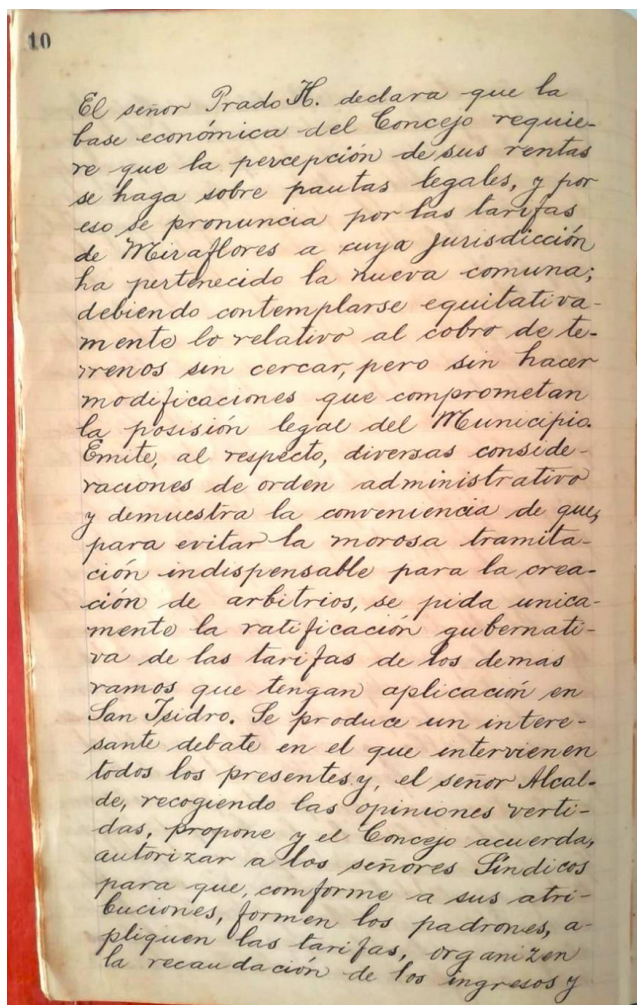 10
El señor Prado H. declara que la
base económica del Concejo requie-
re que la percepción de sus rentas
se haga sobre pautas legales, y por
eso se pronuncia por las tarifas
de Miraflores a cuya jurisdicción
ha pertenecido la nueva comuna;
debiendo contemplarse equitativa-
mente lo relativo al cobro de te-
rrenos sin cercar, pero sin hacer
modificaciones que comprometan
la posisión legal del Municipio.
Emite, al respecto, diversas conside-
raciones de orden administrativo
y demuestra la conveniencia de que,
para evitar la morosa tramita-
ción indispensable para la crea-
ción de arbitrios, se pida unica-
mente la ratificación gubernati-
va de las tarifas de los demas
ramos que tengan aplicación en
San Isidro. Se produce un intere-
sante debate en el que intervienen
todos los presentes y, el señor Alcal-
de, recogiendo las opiniones verti-
das, propone y el Concejo acuerda,
autorizar a los señores Síndicos
para que, comforme a sus atri-
buciones, formen los padrones, a-
pliquen las tarifas, organizen
la recaudación de los ingresos y